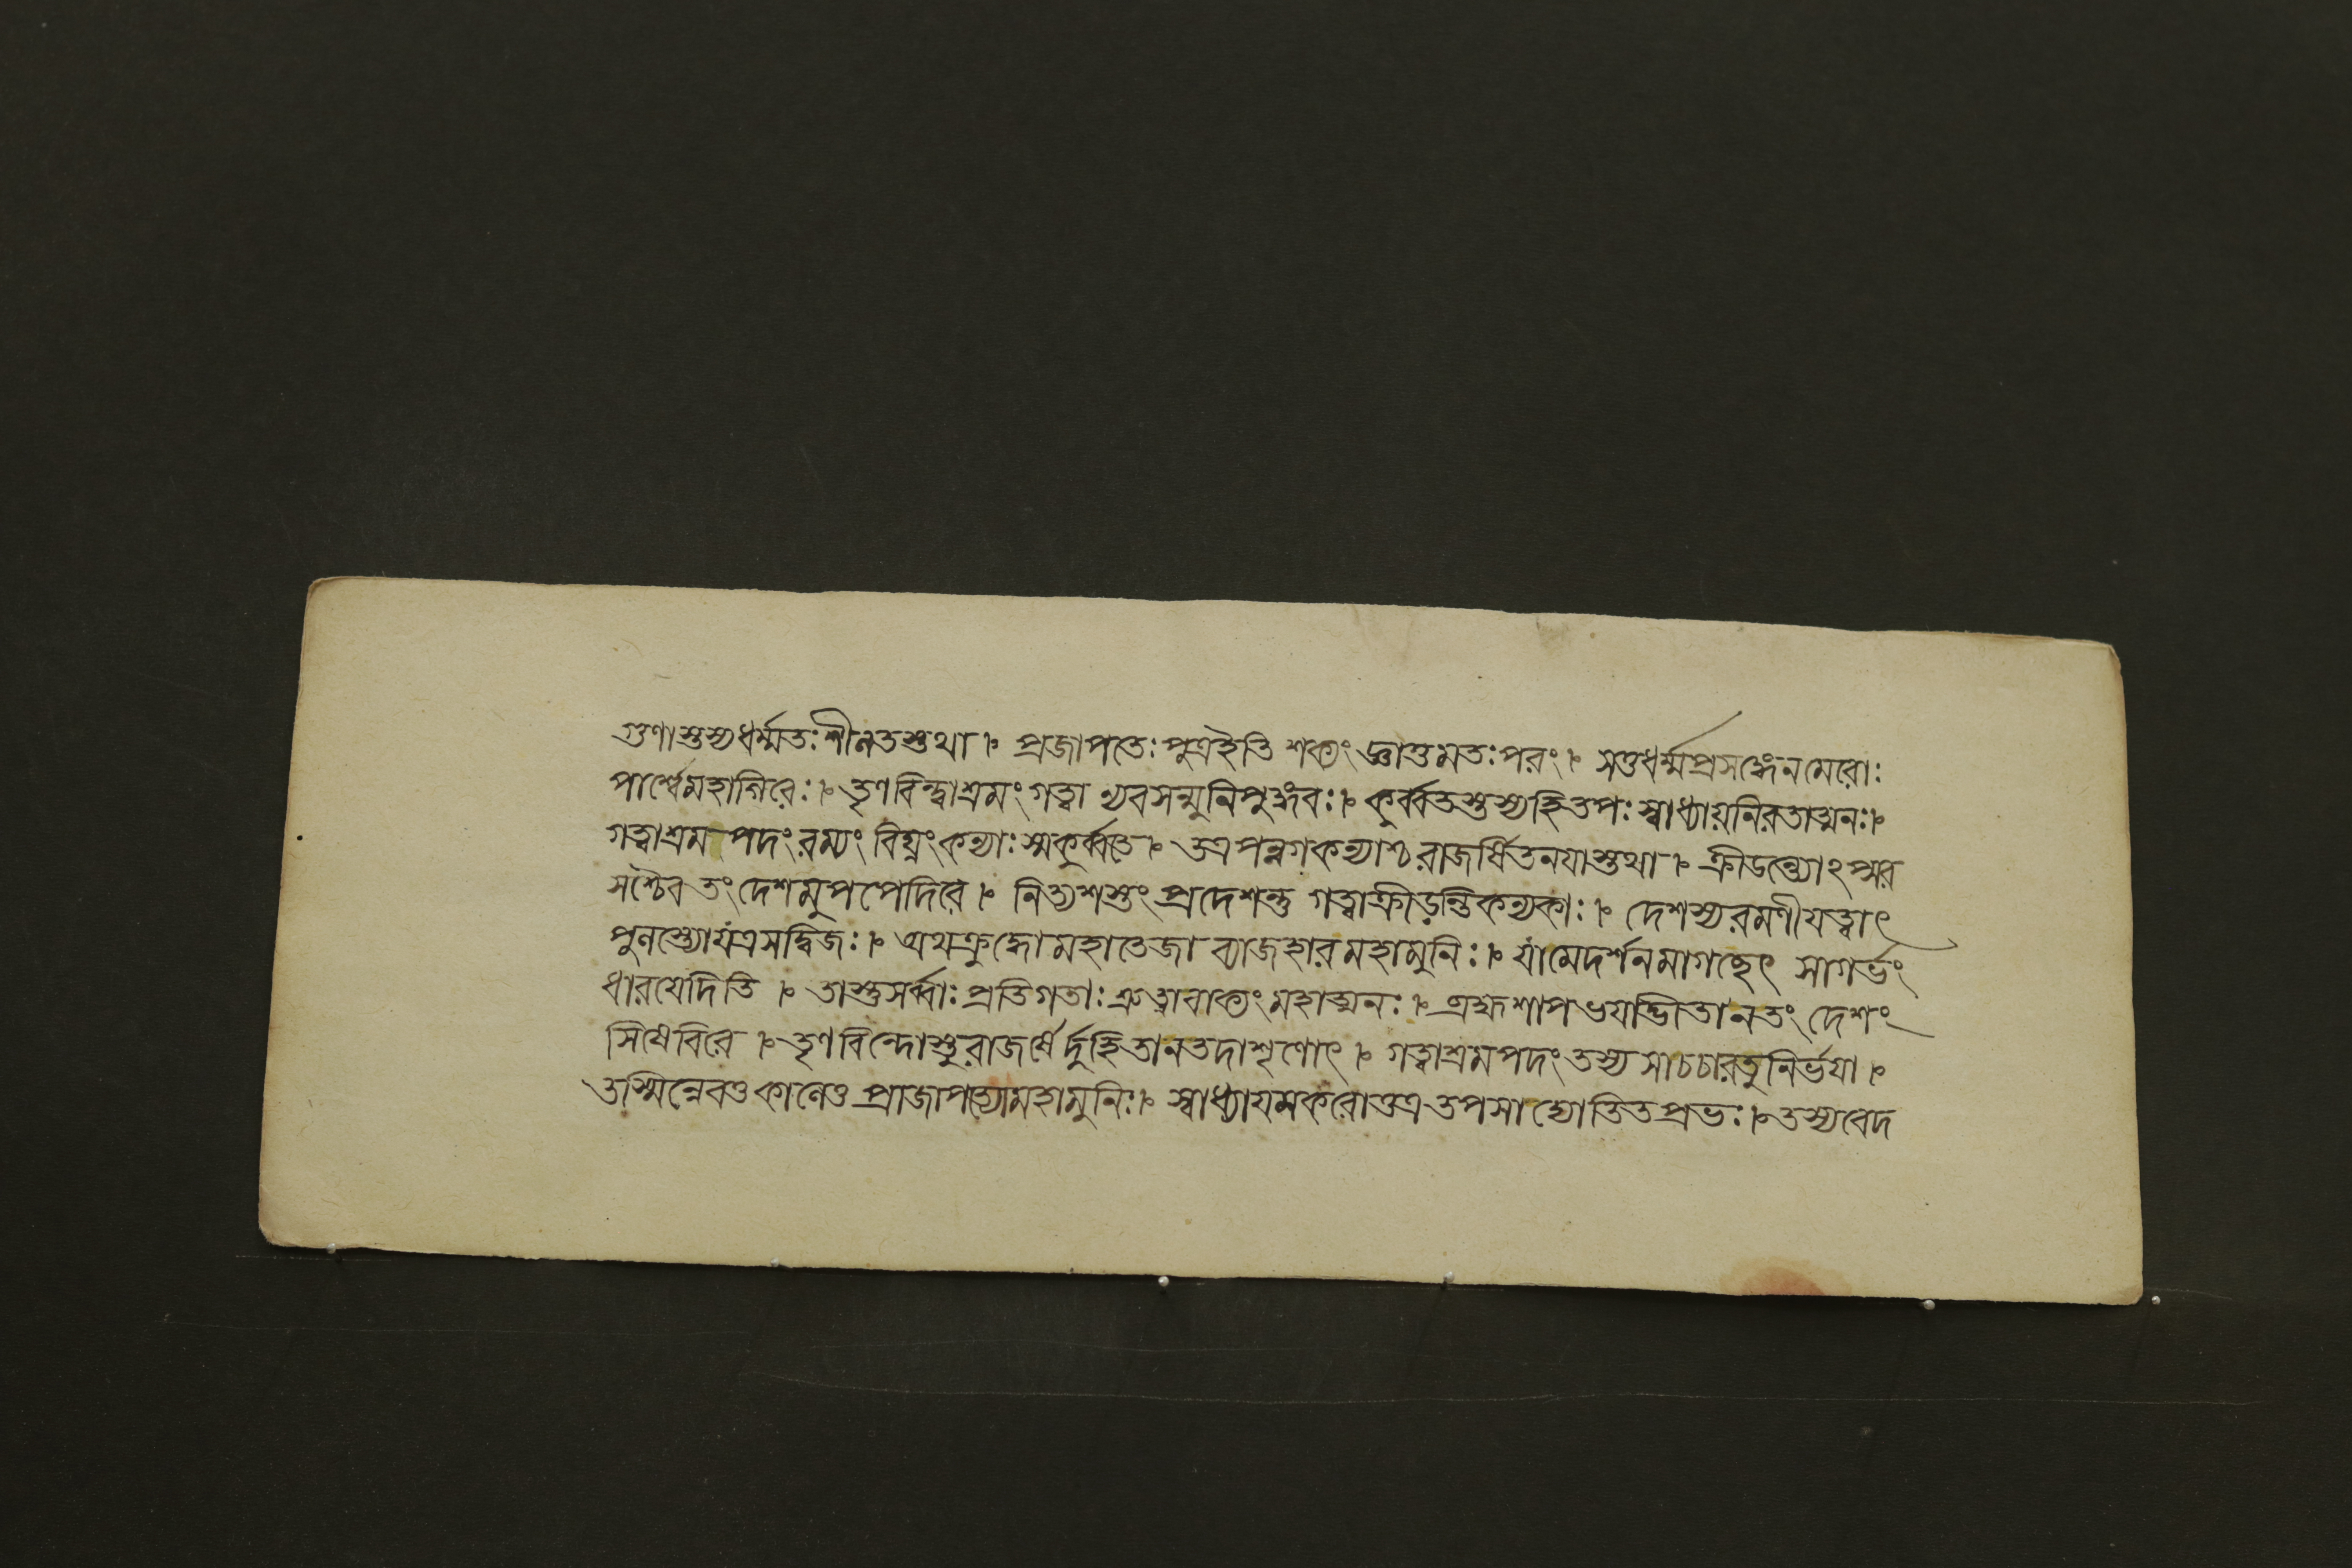 গুণাস্তস্যধর্ম্মতঃশীলতস্তথা ৷৹ প্রজাপতেঃপুত্রইতি শক্যং জ্ঞাতুমতঃপরং ৷৹ সতুধর্ম্মপ্রসঙ্গেনমেরোঃ
পার্শ্বেমহাগিরেঃ ৷৹ তৃণবিন্দ্বাশ্রমংগত্বা ন্যবসন্মুনিপুঙ্গবঃ ৷৹ কুর্ব্বতস্তস্যহিতপঃ স্বাধ্যায়নিরতাত্মনঃ ৷৹
গত্বাশ্রম পদংরম্যং বিঘ্নংকন্যাঃস্মকুর্ব্বতে ৷৹ তত্রপন্নগকন্যাশ্চরাজর্ষিতনযাস্তথা ৷৹ ক্রীডন্ত্যোঽপ্সর
সশ্চৈব তংদেশমুপপেদিরে ৷৹ নিত্যশস্তংপ্রদেশন্তু গত্বাক্রীড়ন্তিকন্যকাঃ ৷৹ দেশস্যরমণীযত্বাৎ
পুলস্ত্যোযত্রসদ্বিজঃ ৷৹ অথক্রুদ্ধোমহাতেজা ব্যাজহারমহামুনিঃ ৷৹ যামেদর্শনমাগচ্ছেৎ সাগর্ভং
ধারযেদিতি ৷৹ তাস্তুসর্ব্বাঃপ্রতিগতাঃ শ্রুত্বাবাক্যংমহাত্মনঃ ৷৹ ব্রহ্মশাপভযাদ্ভীতানতংদেশং
সিষেবিরে ৷৹ তৃণবিন্দোস্তুরাজর্ষের্দুহিতানতদাশৃণোৎ ৷৹ গত্বাশ্রমপদংতস্য সাচচারতুনির্ভযা ৷৹
তস্মিন্নেবতুকালেতু প্রাজাপত্যোমহামুনিঃ ৷৹ স্বাধ্যাযমকরোত্তত্রতপসাদ্যোতিতপ্রভঃ ৷৹ তস্যবেদ